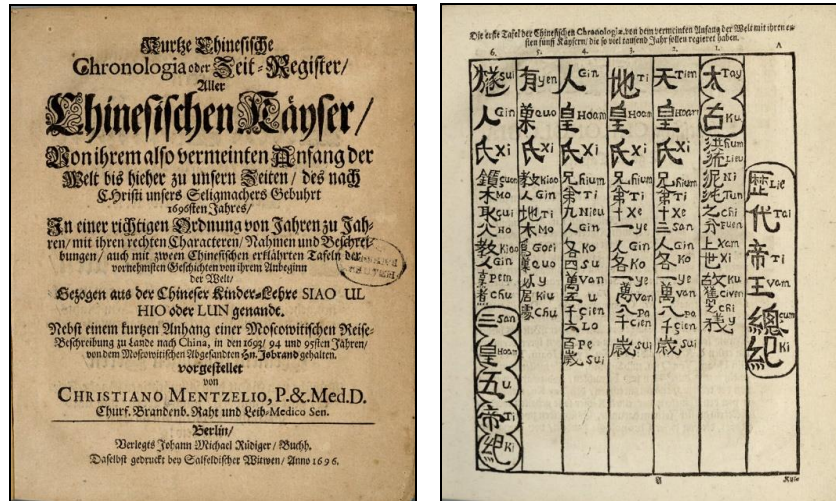 Kurtze Chinesische
Chronologia oder Zeit-Register/
Aller
Chinesischen Käyser/
Von ihrem also vermeinten Anfang der
Welt bis hieher zu unsern Zeiten/ des nach
Christi unsers Seligmachers Gebuhrt
1696sten Jahres/
In einer richtigen Ordnung von Jahren zu Jah-
ren/ mit ihren rechten Characteren/ Nahmen und Beschrei-
bungen/ auch mit zween Chinesischen erklährten Tafeln der
vornehmsten Geschichten von ihrem Anbeginn
der Welt/
Gezogen aus der Chineser Kinder-Lehre SIAO UL
HIO oder LUN genande.
Nebst einem kurtzen Anhang einer Moscowitischen Reise-
Beschreibung zu Lande nach China, in den 1693/ 94 und 95sten Jahren/
von dem Moscowitischen Abgesandten Hn. Isbrand gehalten.
vorgestellet
von
CHRISTIANO MENTZELIO, P. & Med. D.
Churf. Brandenb. Raht und Leib-Medico Sen.
Berlin/
Verlegts Johann Michael Rüdiger/ Buchh.
Daselbst gedruckt bey Salfeldischer Witwen/ Anno 1696.
Die erste Tafel der Chinesischen Chronologiæ, von dem vermeinten Anfang der Welt mit ihren er-
sten fünff Käysern, die so viel tausend Jahr sollen regieret haben.
6. 5. 4. 3. 2. 1. A
歷 Lie 代 Tai 帝 Ti 王 Vam 總 çum 紀 Ki
太 Tay 古 Ku 洪 hum 流 Lieu 泥 Ni 沌 Tun 之 Chi 分 Fuen 上 Xam 世 Xi 故 Ku
天 Tien 皇 Hoam 氏 Xi 兄 hium 弟 Ti 十 Xe 三 san 人 Gin 各 Ko 一 ye 萬 Van 八 pa 千 çien 歲 sui
地 Ti 皇 Hoam 氏 Xi 兄 hium 弟 Ti 十 Xe 一 ye 人 Gin 各 Ko 一 ye 萬 Van 八 Pa 千 çien 歲 sui
人 Gin 皇 Hoam 氏 Xi 兄 hium 弟 Ti 九 Nieu 人 Gin 各 Ko 四 su 萬 Van 五 u 千 çien 六 Lo 百 Pe 歲 sui
有 yeu 菓 quo 氏 Xi 教 Kiao 人 Gin 木 Mo 爲 Goei 菓 quo 以 y 居 Kiu 處 Chu
燧 sui 人 Gin 氏 Xi 鑽 çuon 木 Mo 取 çui 火 Ho 教 Kiao 人 Gin 烹 Pem 煮 Chu 三 San 皇 Hoam 五 U 帝 Ti 紀 Ki